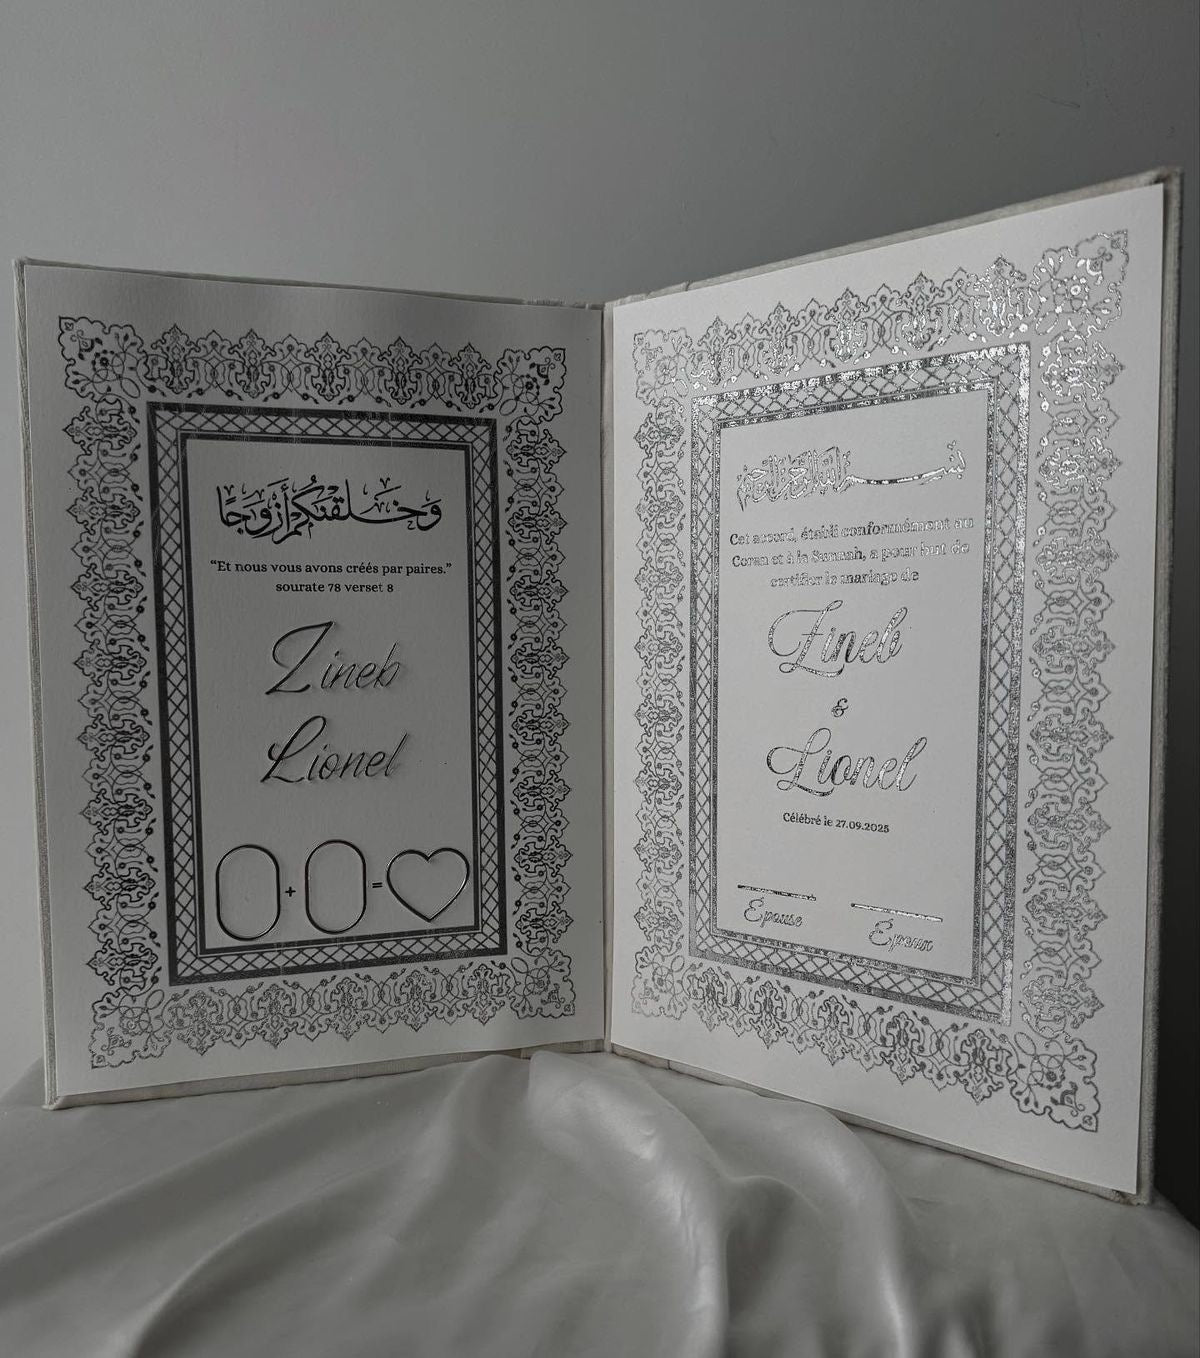 وخلقنكم أزوجا
“Et nous vous avons créés par paires.”
sourate 78 verset 8
Zineb
Lionel
+ =
بسم الله الرحمن الرحيم
Cet accord, établi conformément au
Coran et à la Sunnah, a pour but de
certifier le mariage de
Zineb
&
Lionel
Célébré le 27.09.2025
Épouse
Époux